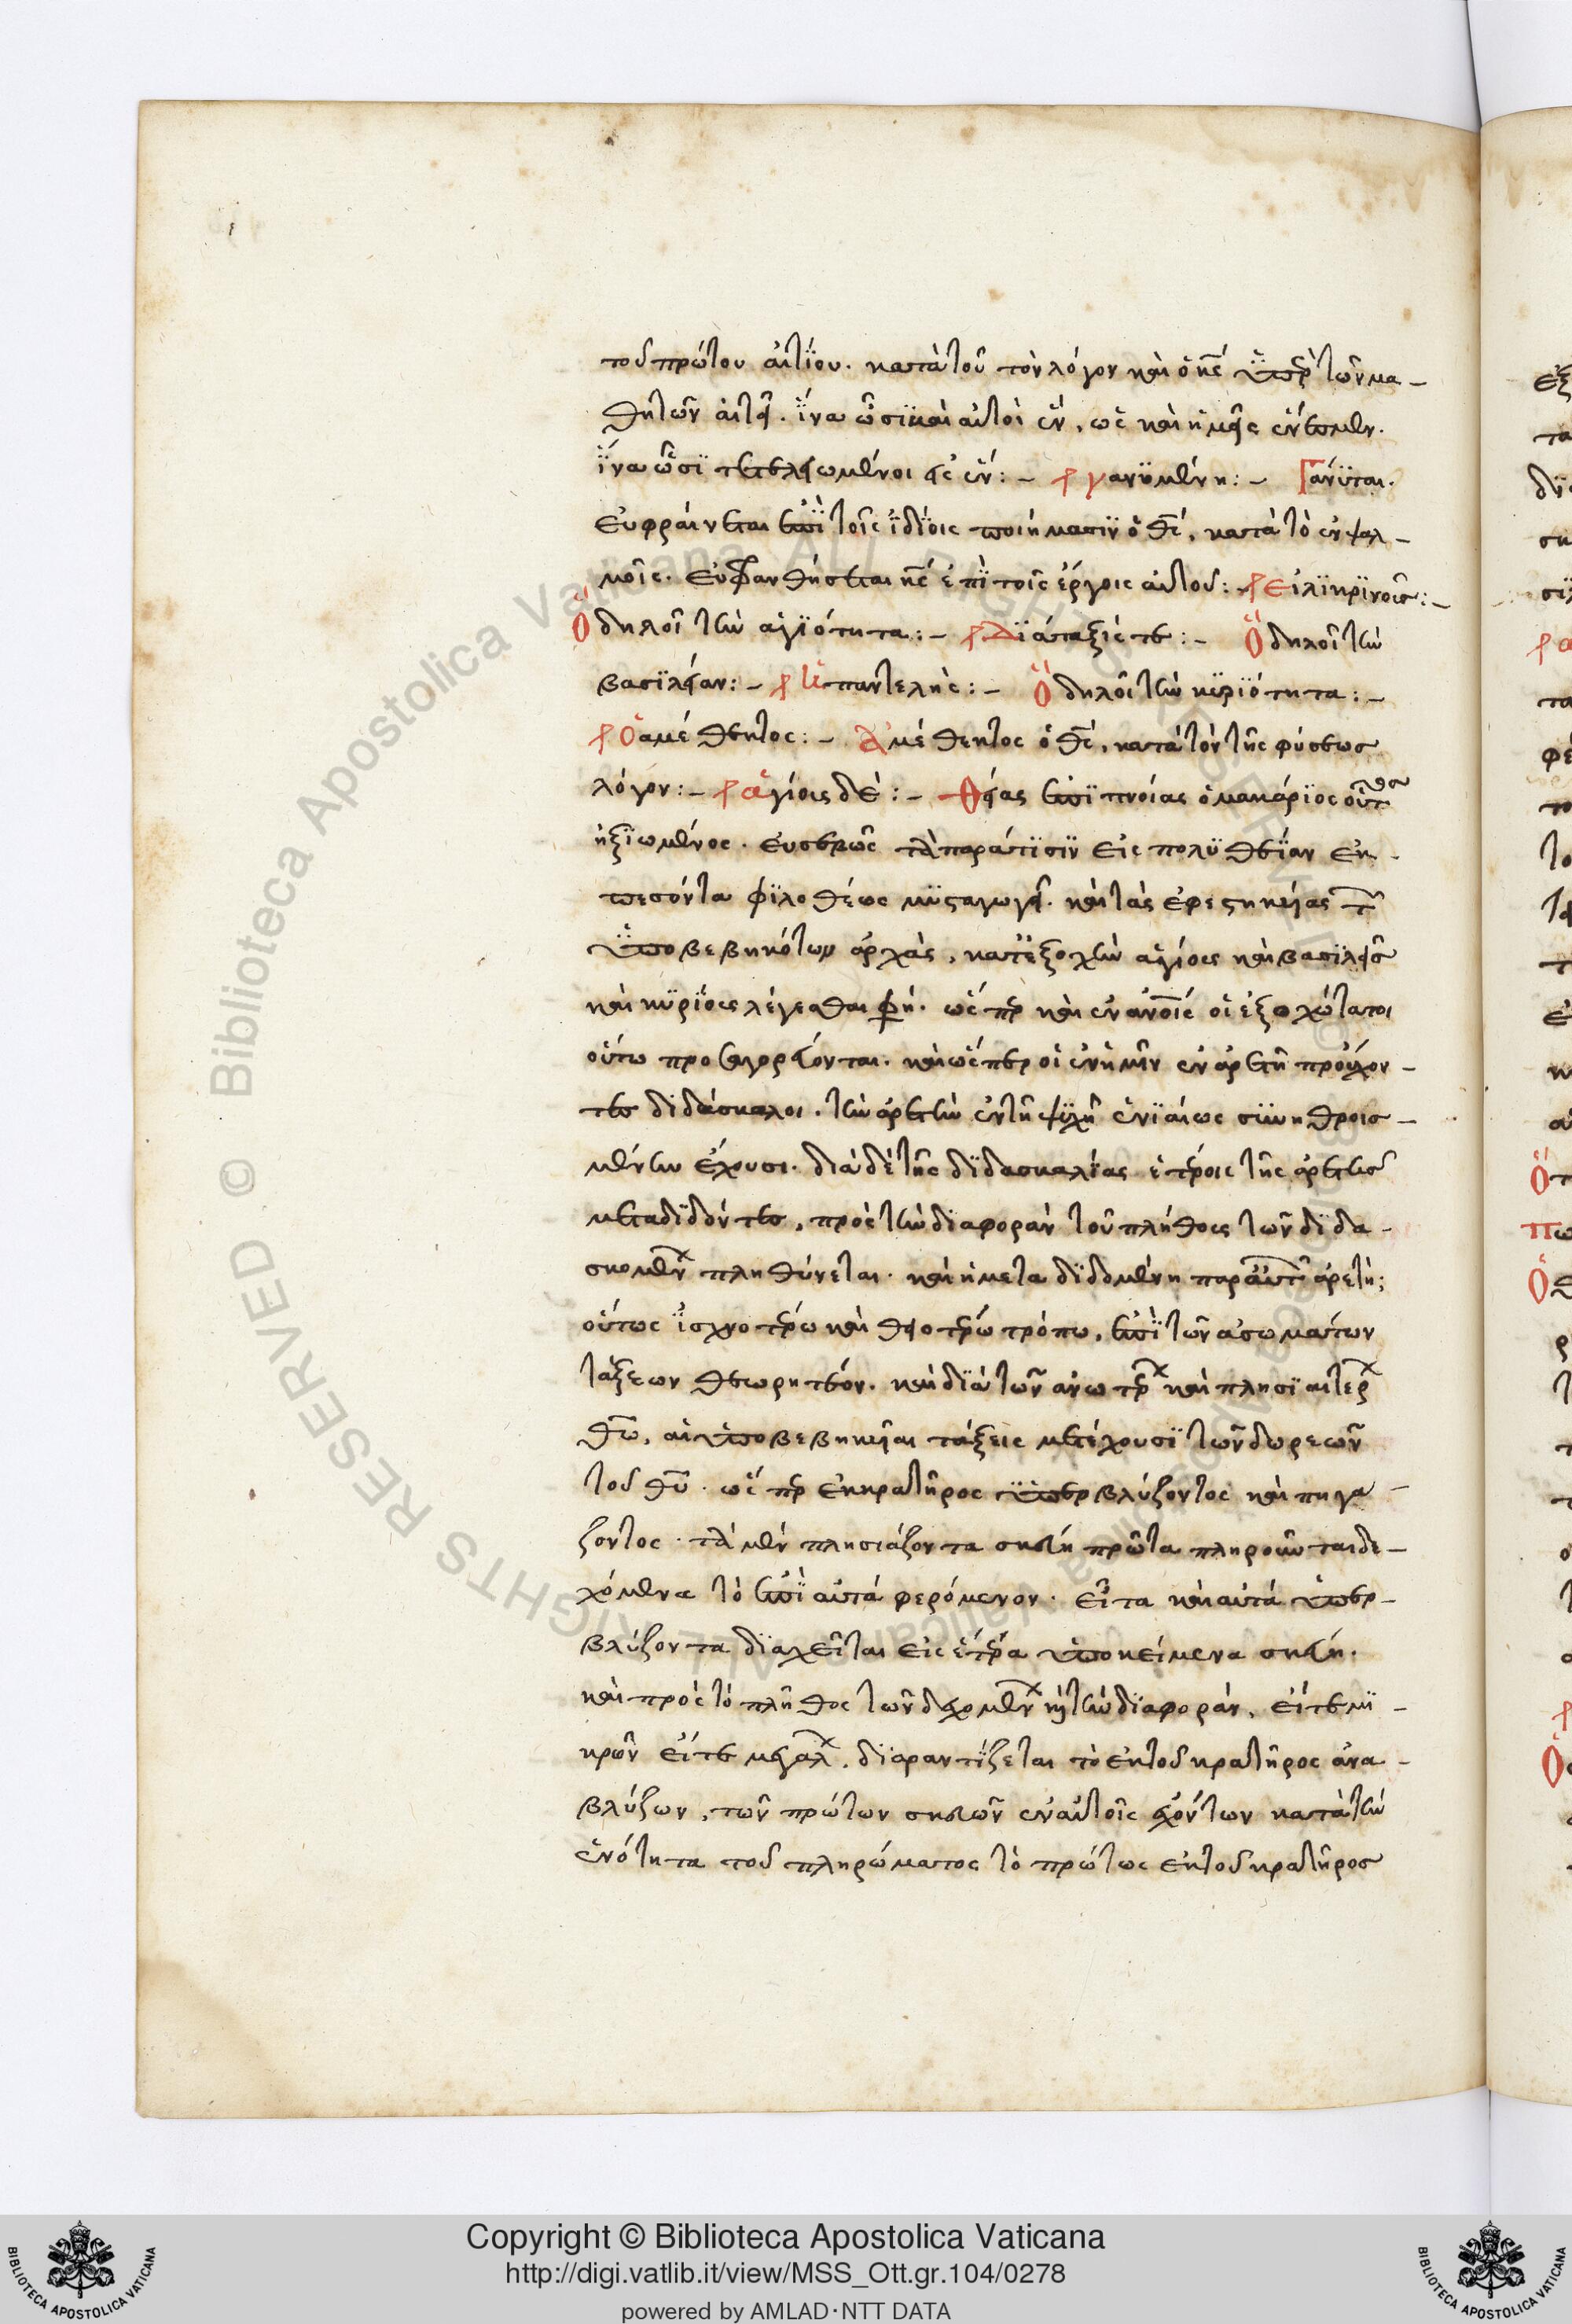 τοῦ πρώτου αἰτΐου. κατὰ τοῦτον λόγον καὶ ὁ κς ὑπὲρ τῶν μα-
θητῶν αἰτεῖ. ἵνα ὦσϊ καὶ αὐτοὶ ἓν, ὡς καὶ ἡμεῖς ἕν ἐσμεν.
ἵνα ὦσϊ τετελειωμένοι εἰς ἕν:- γανϋμένη:- Γάνϋται.
εὐφραίνεται ἐπῒ τοῖς ἰδΐοις ποιήμασϊν ὁ θς, κατὰ τὸ ἐν ψαλ-
μοῖς. εὐφρανθήσεται κς ἐπῒ τοῖς ἔργοις αὐτοῦ: εἰλϊκρϊνοῖς:-
Ὃ δηλοῖ τὴν ἁγϊότητα:- Δϊάταξίς τε:- Ὃ δηλοῖ τὴν
βασϊλείαν:- παντελὴς:- Ὃ δηλοῖ τὴν κϋρϊότητα:-
Ὁ ἀμέθεκτος:- Ἀμέθεκτος ὁ θς, κατὰ τὸν τῆς φύσεως
λόγον:- ἁγίους δὲ:- Θείας ἐπϊπνοίας ὁ μακάρϊος οὗτος
ἠξϊωμένος. εὐσεβῶς τὰ παρά τϊσϊν εἰς πολϋθεΐαν ἐκ-
πεσόντα φϊλοθέως μϋσταγωγεῖ. καὶ τὰς ἐφεστηκυίας τῶν
ὑποβεβηκότων ἀρχὰς, κατ' ἐξοχὴν ἁγίους καὶ βασϊλεῖς
καὶ κϋρΐους λέγεσθαι φησί. ὥσπερ καὶ ἐν ἀνοις οἱ ἐξοχώτατοι
οὕτω προσαγορεύονται. καὶ ὥσπερ οἱ ἐν ἡμῖν ἐν ἀρετῆ προὔχον-
τες δϊδάσκαλοι. τὴν ἀρετὴν ἐν τῆ ψϋχῆ ἑνϊαίως σϋνηθροισ-
μένην ἔχουσι. διὰ δὲ τῆς δϊδασκαλΐας ἑτέροις τῆς ἀρετῆς
μεταδϊδόντες, πρὸς τὴν δϊαφορὰν τοῦ πλήθους τῶν δϊδα-
σκομένων πληθύνεται. καὶ ἡ μεταδϊδομένη παρ' αὐτῶν ἀρετή;
οὕτως ἰσχνοτέρω καὶ θειοτέρω τρόπω, ἐπῒ τῶν ἀσωμάτων
τάξεων θεωρητέον. καὶ δϊὰ τῶν ἀνωτέρων καὶ πλησϊαιτέρων
θω, αἱ ὑποβεβηκυῖαι τάξεις μετέχουσϊ τῶν δωρεῶν
τοῦ θυ. ὥσπερ ἐκ κρατῆρος ὑπερβλύζοντος καὶ πηγά-
ζοντος. τὰ μὲν πλησιάζοντα σκεύη πρῶτα πληροῦνται δε-
χόμενα τὸ ἐπῒ αὐτὰ φερόμενον. εἶτα καὶ αὐτὰ ὑπερ-
βλύζοντα δϊαχεῖται εἰς ἕτερα ὑποκείμενα σκεύη.
καὶ πρὸς τὸ πλῆθος τῶν δεχομένων καὶ τὴν δϊαφορὰν, εἴτε μϊ-
κρῶν εἴτε μεγάλων, δϊαραντΐζεται τὸ ἐκ τοῦ κρατῆρος ἀνα-
βλύζων, τῶν πρώτων σκευῶν ἐν αὐτοῖς ἐχόντων κατὰ τὴν
ἑνότητα τοῦ πληρώματος τὸ πρώτως ἐκ τοῦ κρατῆρος
Copyright © Biblioteca Apostolica Vaticana
http://digi.vatlib.it/view/MSS_Ott.gr.104/0278
powered by AMLAD·NTT DATA